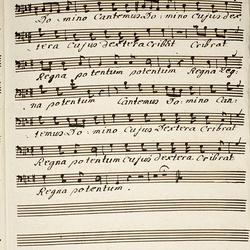 Do: mino Cantemus Do: mino Cujus dex
tera Cujus dextera Cribat Cribrat
Regna potentum potentum Regna Reg:
na potentum Cantemus Do: mino Can:
temus Do: mino Cujus Dextera Cribrat
Regna potentum Cujus dextera Cribrat
Regna potentum.